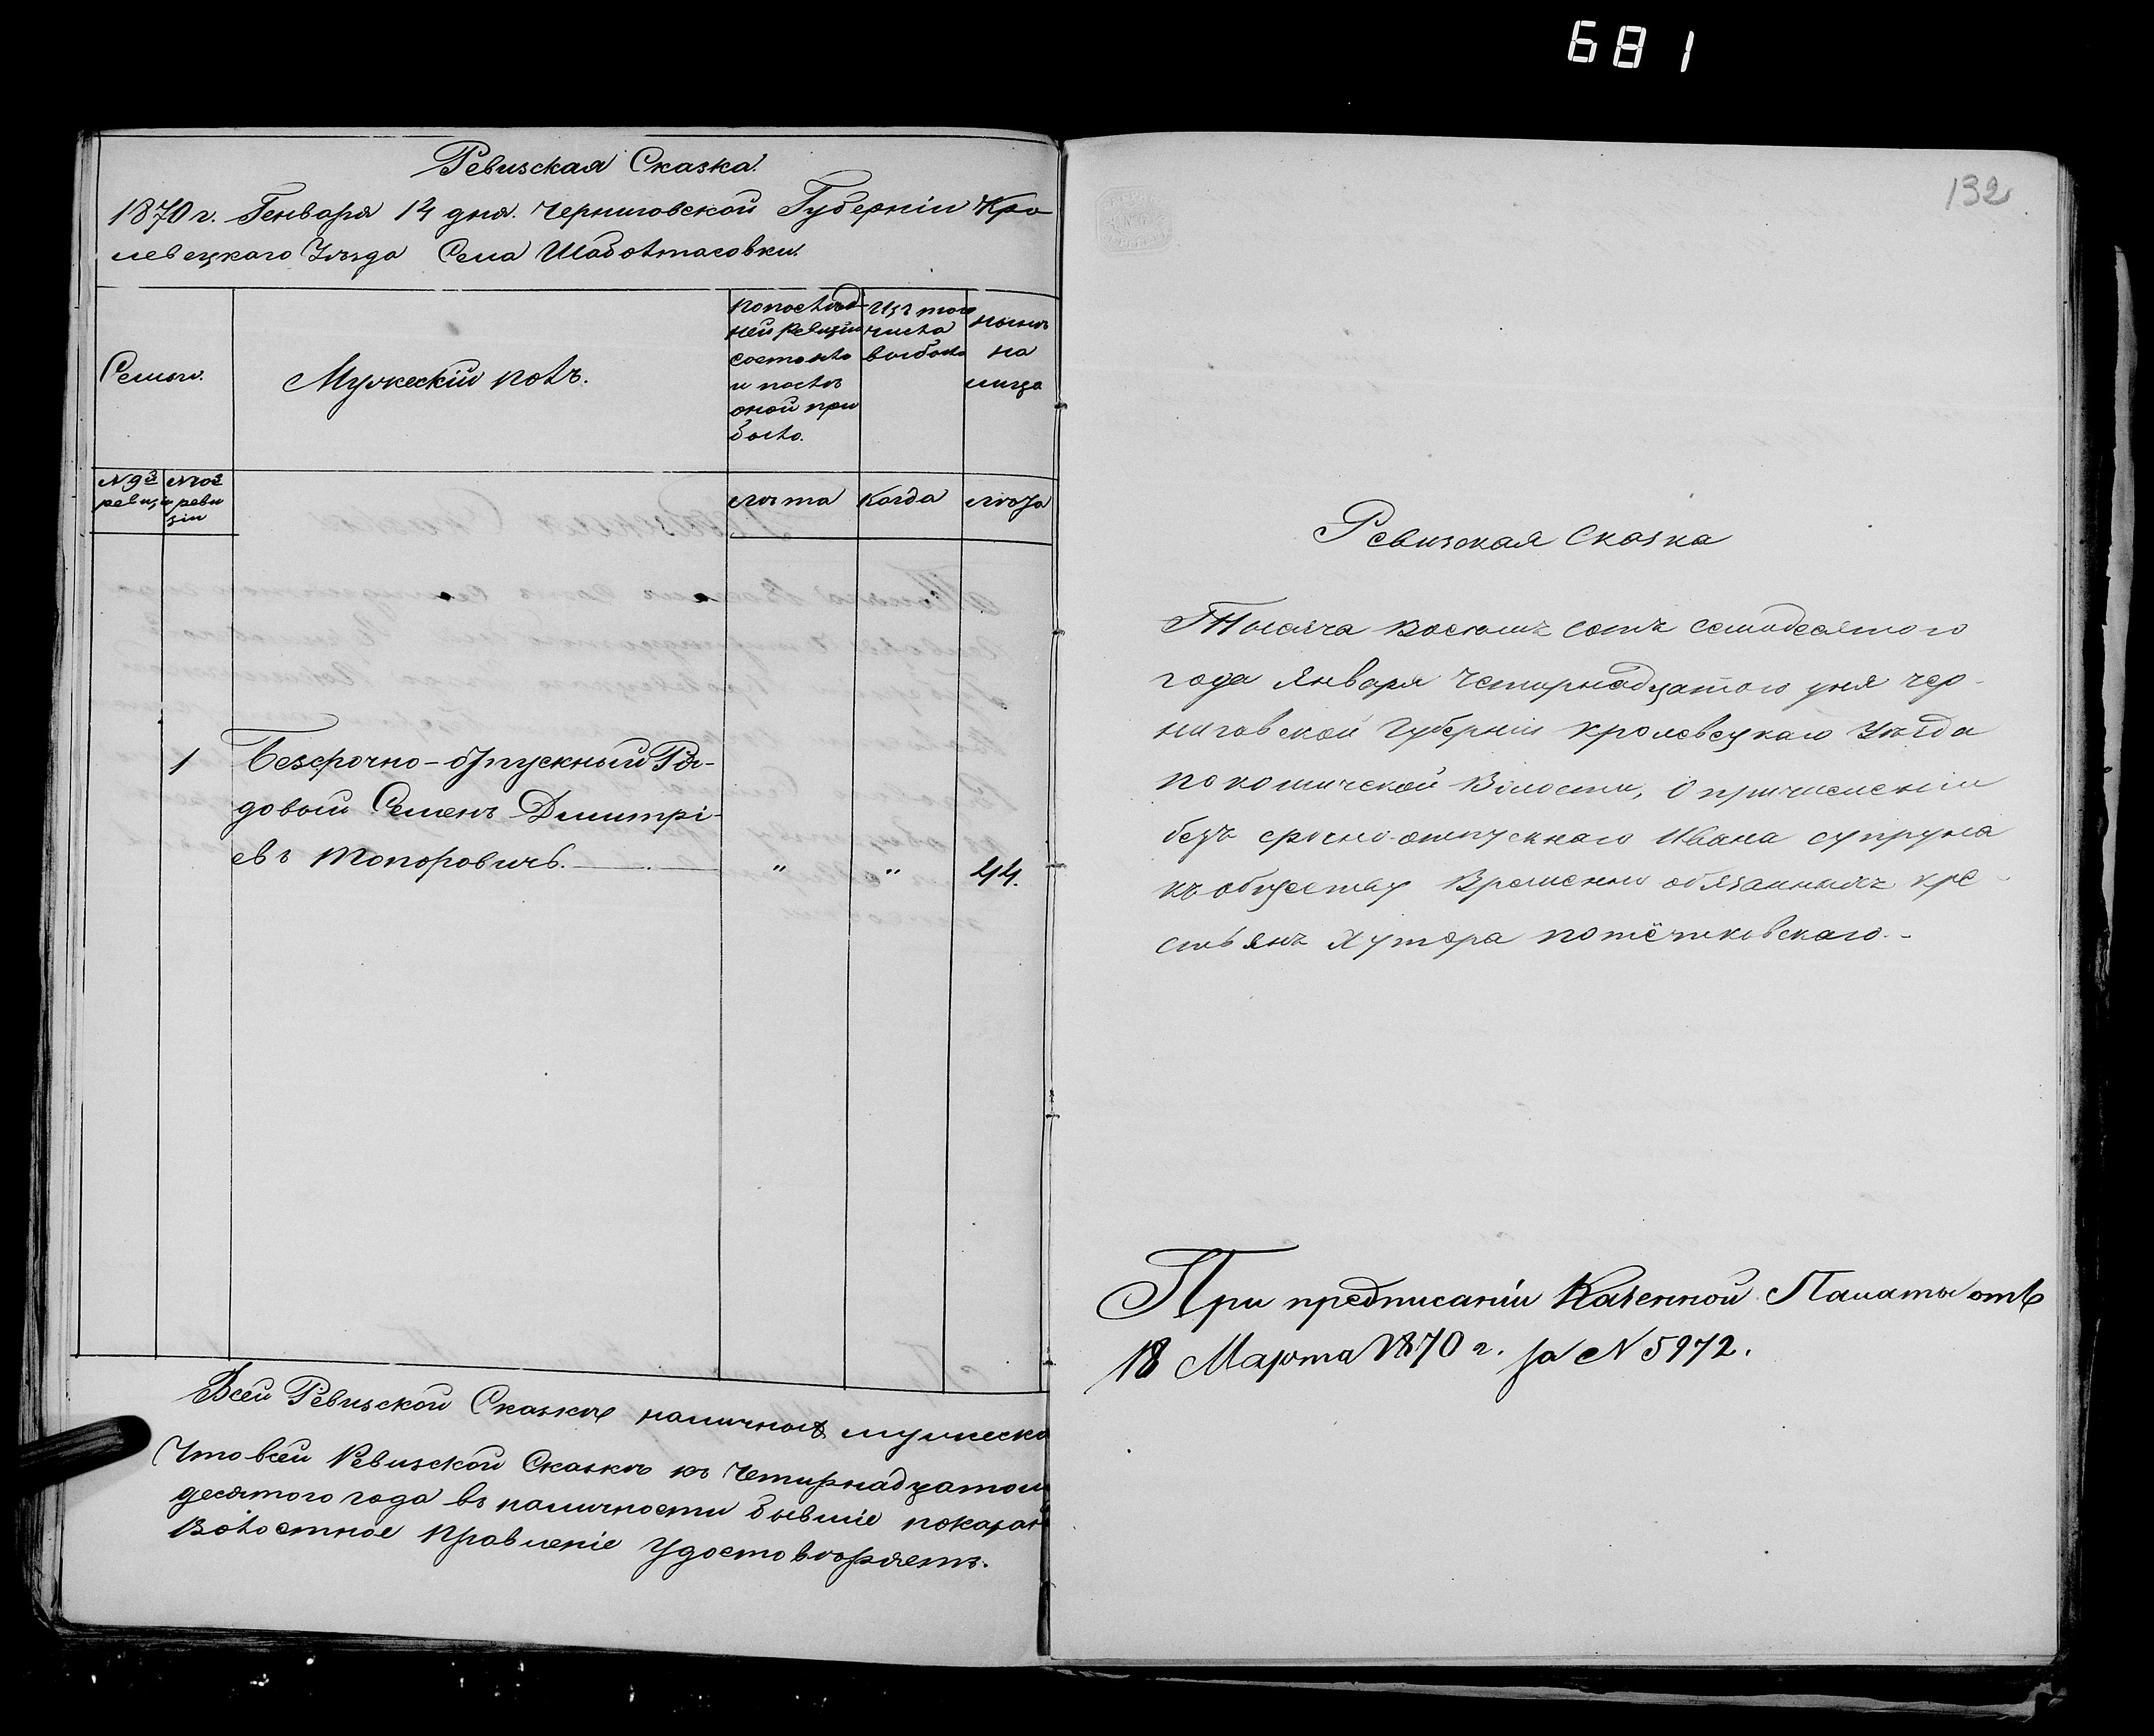 681
Ревизская Сказка.
1870 г. Генваря 14 дня. Черниговской Губерніи Кро
левецкаго Уѣзда Села Шабо
Семьи.
Мужескій полъ.
По послѣд-
ней Ревизіи
состояло
и послѣ
оной при
было.
Изъ того
числа
выбыло
нынѣ
на
лицо
№ 9й
ревизіи
№ 10й
реви
зіи
лѣта
Когда
лѣта
1
Безсрочно-отпускный Ря-
довый Семенъ Дмитрі-
евъ Топоровичъ.
"
"
44.
Всей Ревизской Сказкѣ наличною мужеска
Что всей Ревизской Сказкѣ къ Четырнадцатом
десятого года въ наличности бывшіе показан
Волостное Правленіе Удостовѣряетъ.
132
Ревизская Сказка
Тысяча восемь сотъ семидесятого
года Января Четырнадцатого дня Чер-
ниговской Губерніи Кролевецкаго Уѣзда
Покошичской Волости, О причисленіи
безъ срочно-отпускнаго Ивана Супруна
къ обществу Временно обязанныхъ кре-
стьянъ Хутора Потёчиковскаго.-
При предписаніи Казенной Палаты отъ
18 Марта 1870 г. за № 5972.